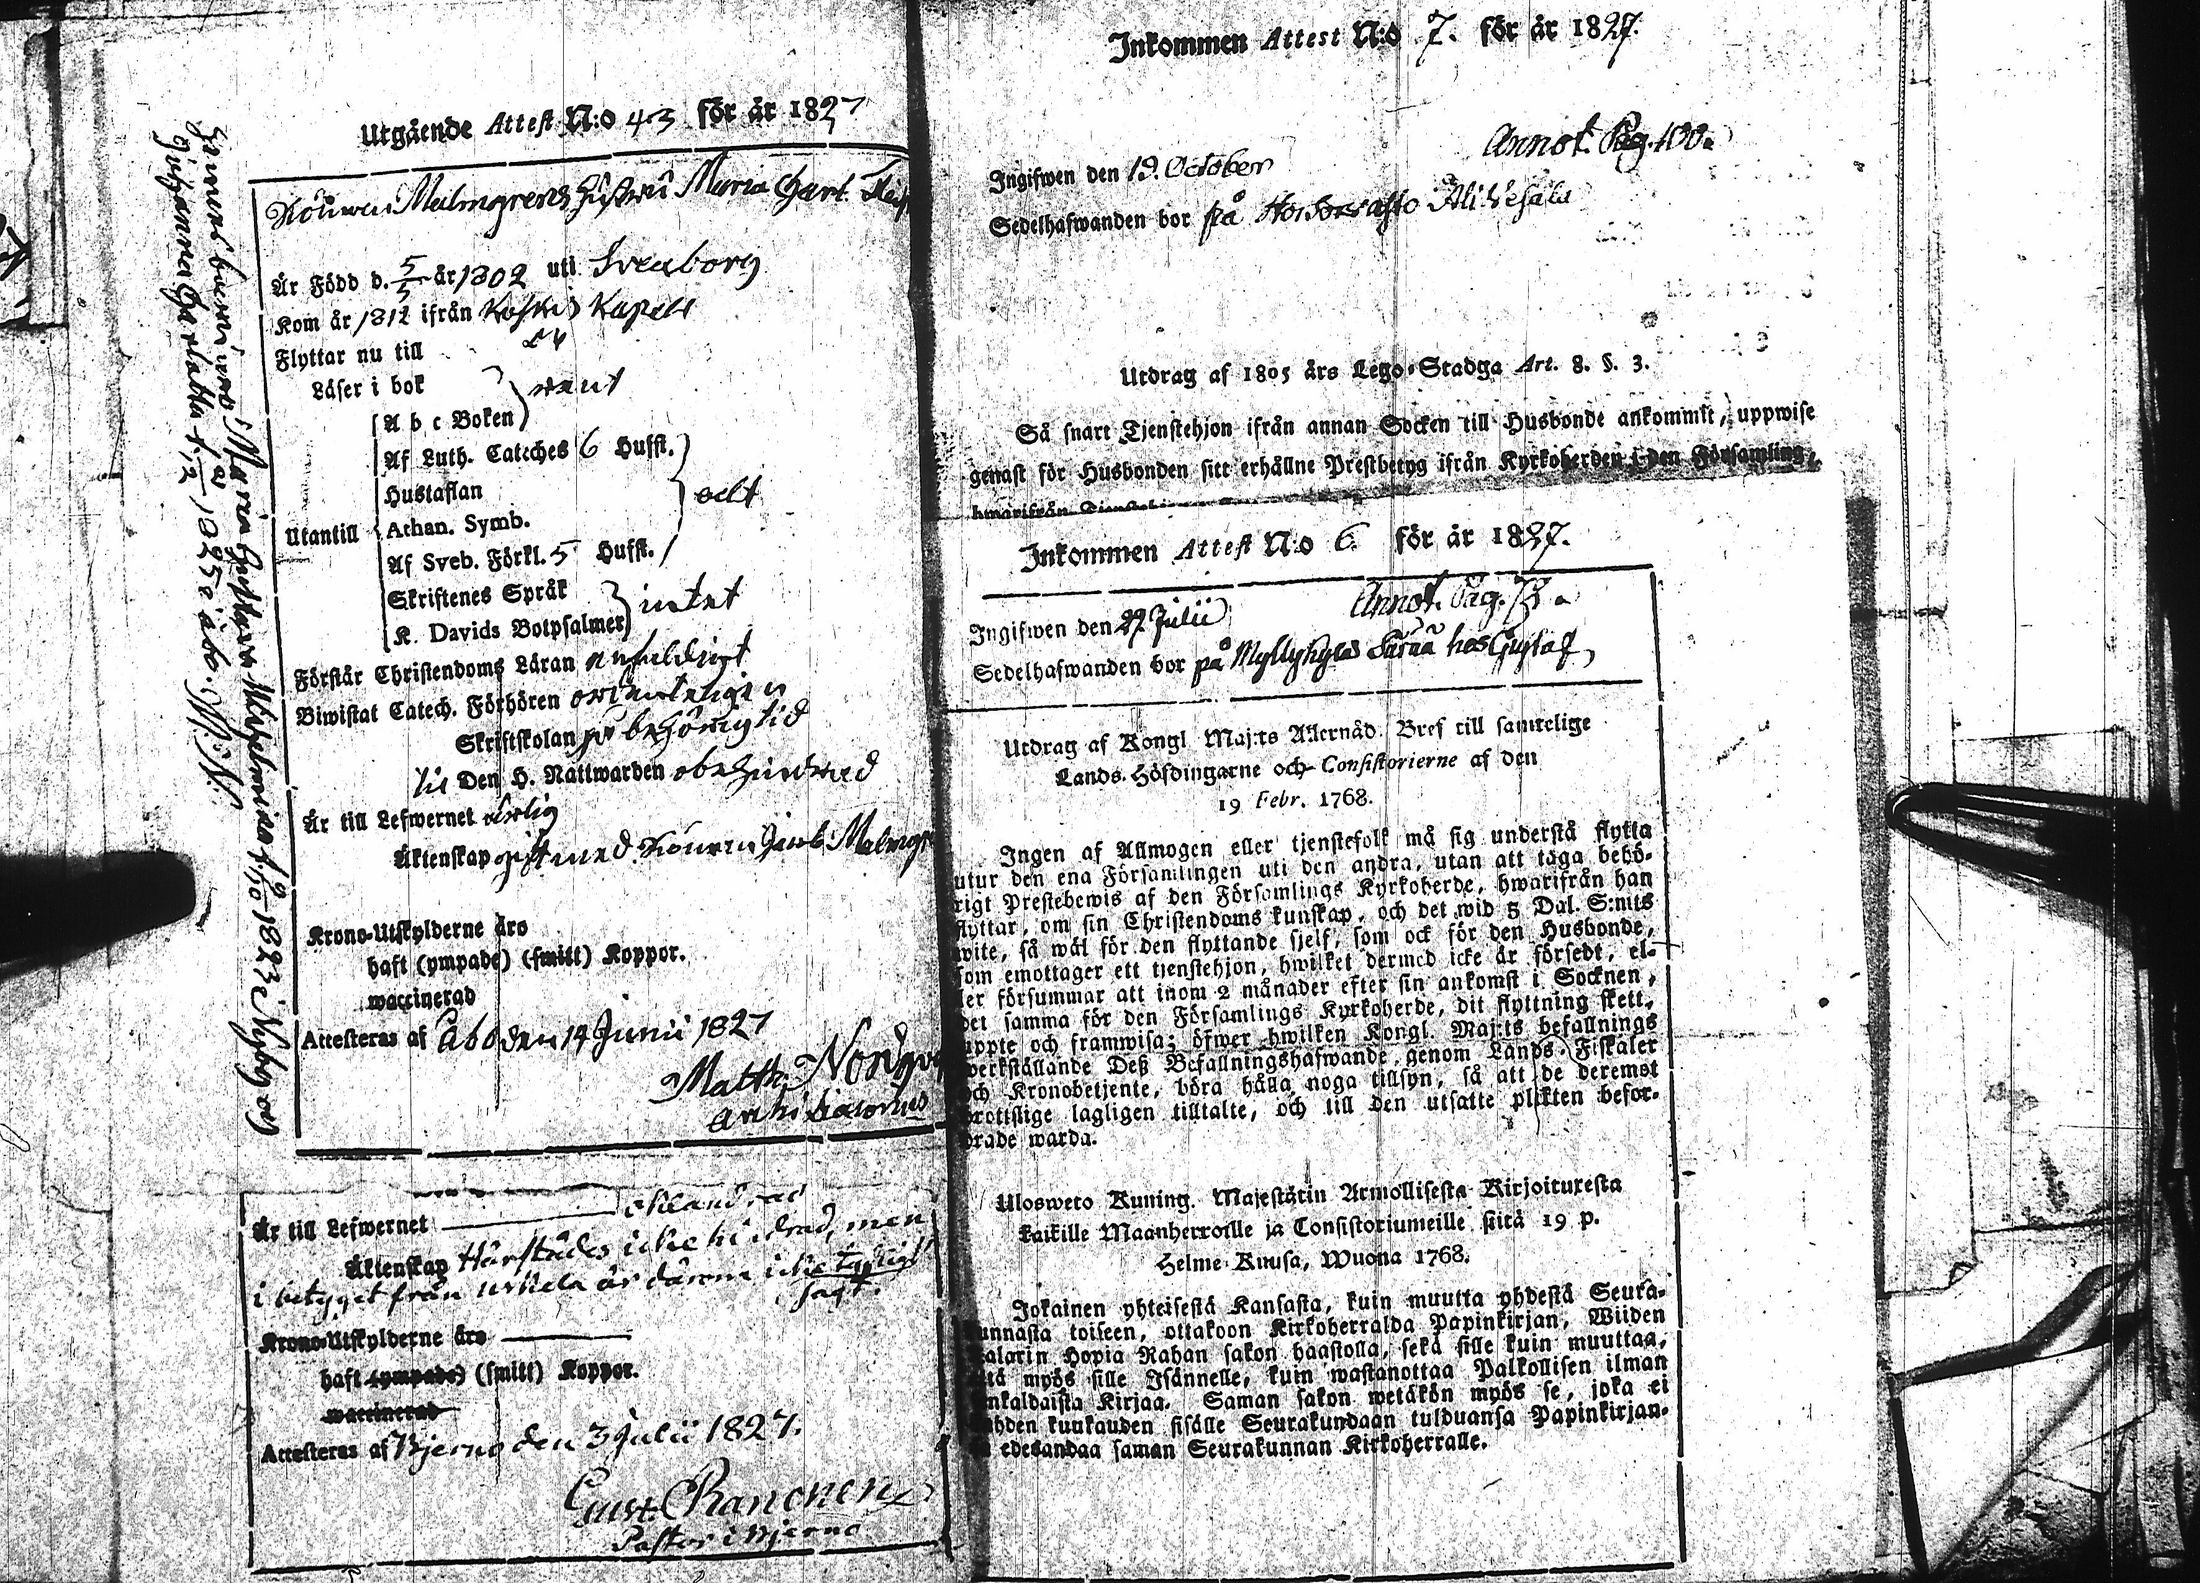 Utgående Attest N:o 43 för år 1827
Malmgrens Hustru Maria Charl.
Är Född d. 5/5 år 1802 uti Sveaborg
Kom år 1812 ifrån Koskis Kapell
Flyttar nu till
Läser i bok
A b c Boken } rent
Utantill
Af Luth. Cateches 6 Hufst.
Hustaflan
Athan. Symb.
Af Sveb. Förkl. 5 Hufst.
Skriftenes Språk
K. Davids Botpsalmer } intet
Förstår Christendoms Läran enfeldigt
Biwistat Catech. Förhören ordenteligen
Skriftskolan på behörig tid
till Den H. Nattwarden obehindrad
Är till Lefwernet ärlig
Äktenskap gift med
Krono-Utskylderne äro
haft (ympade) (smitt) Koppor.
waccinerad
Attesteras af Åbo den 14 Junii 1827
Matth.
Archi Diaconus
Maria Gustava Wilhelmina 1823 i Nyby
Johanna Charlotta 1825 i Åbo.
Är till Lefwernet oklandrad
Äktenskap Härstädes icke hindrad, men
i betyget från är därom icke tydligt
sagt.
Krono-Utskylderne äro
haft (ympade) (smitt) Koppor.
waccinerad
Attesteras af Bjerno den 3 Julii 1827.
Gust. Rancken
Pastor i Bjerno
Inkommen Attest N:o 7. för år 1827.
Annot. Pag. 100.
Ingifwen den 19. October
Sedelhafwanden bor på
Utdrag af 1805 års Lego-Stadga Art. 8. §. 3.
Så snart Tjenstehjon ifrån annan Socken till Husbonde ankommit, uppwise
genast för Husbonden sitt erhållne Prestbetyg ifrån Kyrkoherden i den Församling,
hwarifrån
Inkommen Attest N:o 6. för år 1827.
Annot. Pag.
Ingifwen den 29 Julii
Sedelhafwanden bor på Myllykylä hos Gustaf
Utdrag af Kongl. Maj:ts Allernåd. Bref till samtelige
Lands-Höfdingarne och Consistorierne af den
19 Febr. 1768.
Ingen af Allmogen eller tjenstefolk må sig understå flytta
utur den ena Församlingen uti den andra, utan att taga behö-
rigt Prestebewis af den Församlings Kyrkoherde, hwarifrån han
flyttar, om sin Christendoms kunskap, och det wid 5 Dal. S:mts
wite, så wäl för den flyttande sjelf, som ock för den Husbonde,
som emottager ett tjenstehjon, hwilket dermed icke är försedt, el-
ler försummar att inom 2 månader efter sin ankomst i Socknen,
det samma för den Församlings Kyrkoherde, dit flyttning skett,
uppte och framwisa; öfwer hwilken Kongl. Maj:ts befallnings
werkställande Deß Befallningshafwande, genom Lands-Fiskaler
och Kronobetjente, böra hålla noga tillsyn, så att de deremot
brottslige lagligen tilltalte, och till den utsatte plikten befor-
drade warda.
Ulosweto Kuning. Majestätin Armollisesta Kirjoituresta
kaikille Maanherroille ja Consistoriumeille siitä 19 p.
Helme-Kuusa, Wuona 1768.
Jokainen yhteisestä Kansasta, kuin muutta yhdestä Seura-
kunnasta toiseen, ottakoon Kirkoherralda Papinkirjan, Wiiden
Talarin Hopia Rahan sakon haastolla, sekä sille kuin muuttaa,
että myös sille Isännelle, kuin wastanottaa Palkollisen ilman
senkaldaista Kirjaa. Saman sakon wetäkön myös se, joka ei
kahden kuukauden sisälle Seurakundaan tulduansa Papinkirjan-
sa edesandaa saman Seurakunnan Kirkoherralle.